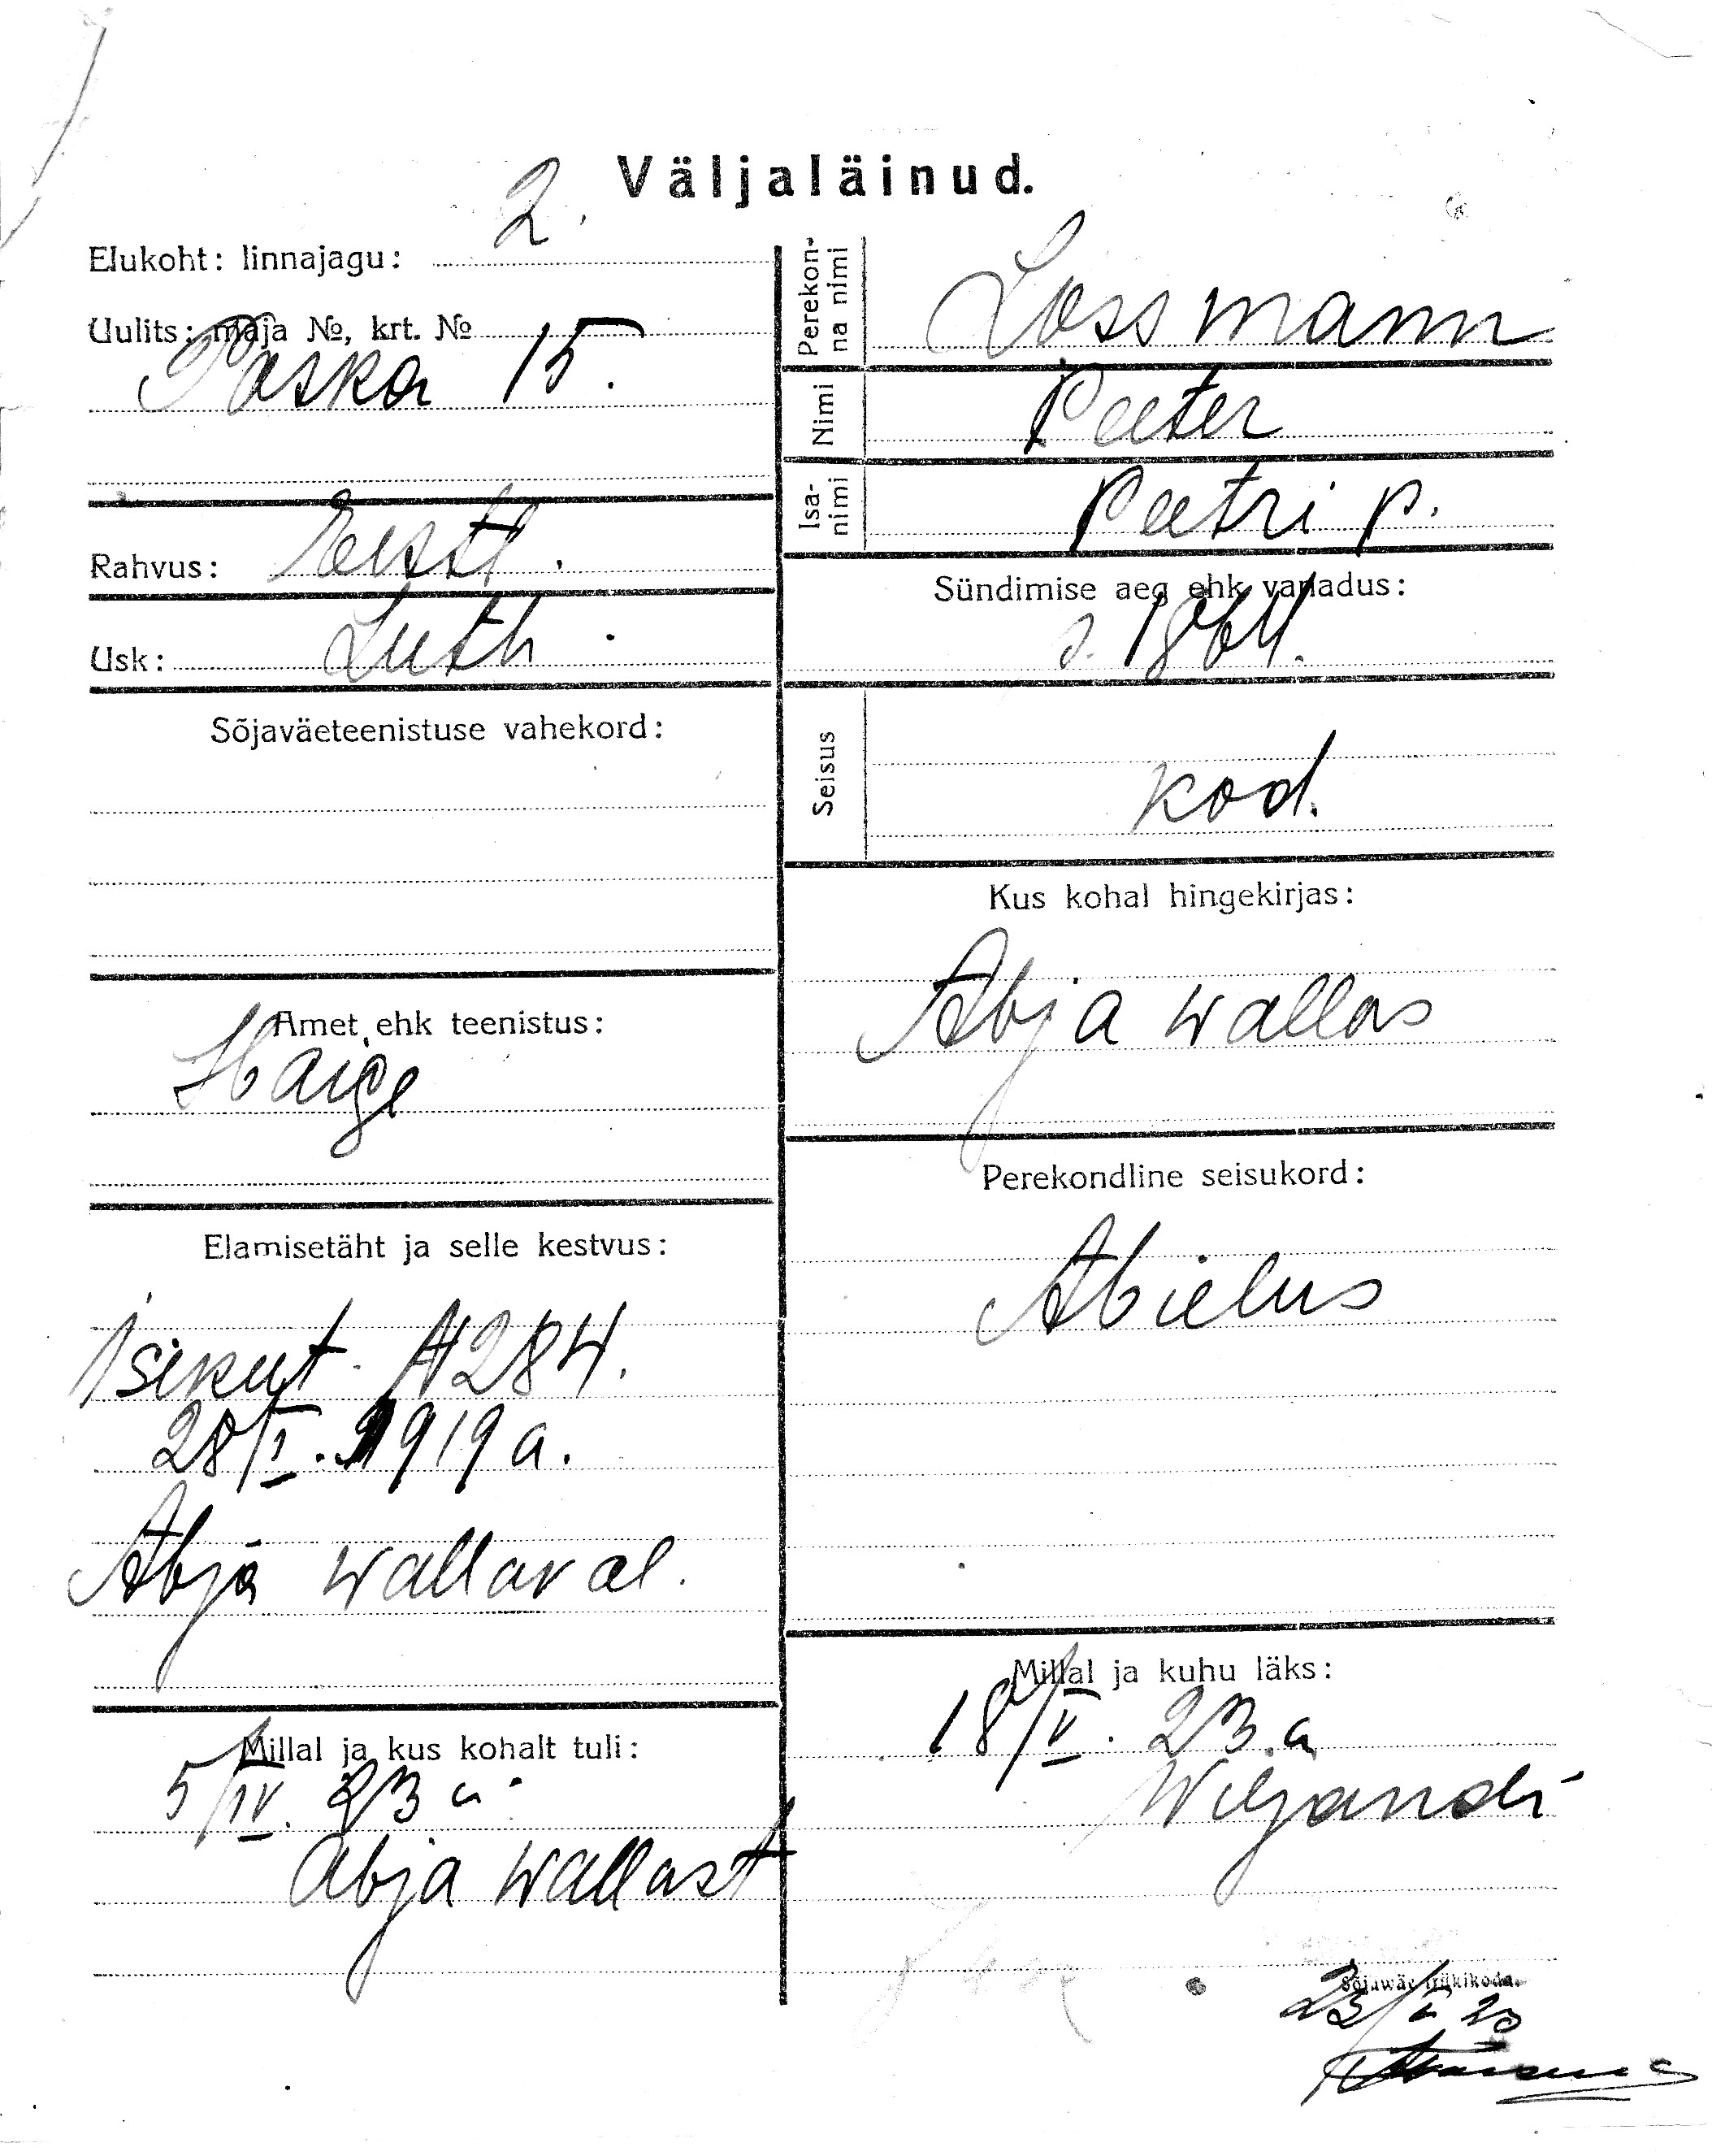 Väljaläinud.
Elukoht: linnajagu: 2.
Uulits: maja №, krt. №
Poska 15.
Rahvus: Eestl.
Usk: Luth.
Sõjaväeteenistuse vahekord:
Amet ehk teenistus:
Haige
Elamisetäht ja selle kestvus:
Isikut. № 284.
28/I. 1919 a.
Abja wallaval.
Millal ja kus kohalt tuli:
5/IV. 23 a.
Abja wallast
Perekon-
na nimi
Lossmann
Nimi
Peeter
Isa-
nimi
Peetri p.
Sündimise aeg ehk vanadus:
s. 1864.
Seisus
kod.
Kus kohal hingekirjas:
Abja wallas
Perekondline seisukord:
Abielus
Millal ja kuhu läks:
18/V. 23. a
Wiljandi
Sõjawäe trükikoda.
23/V 23